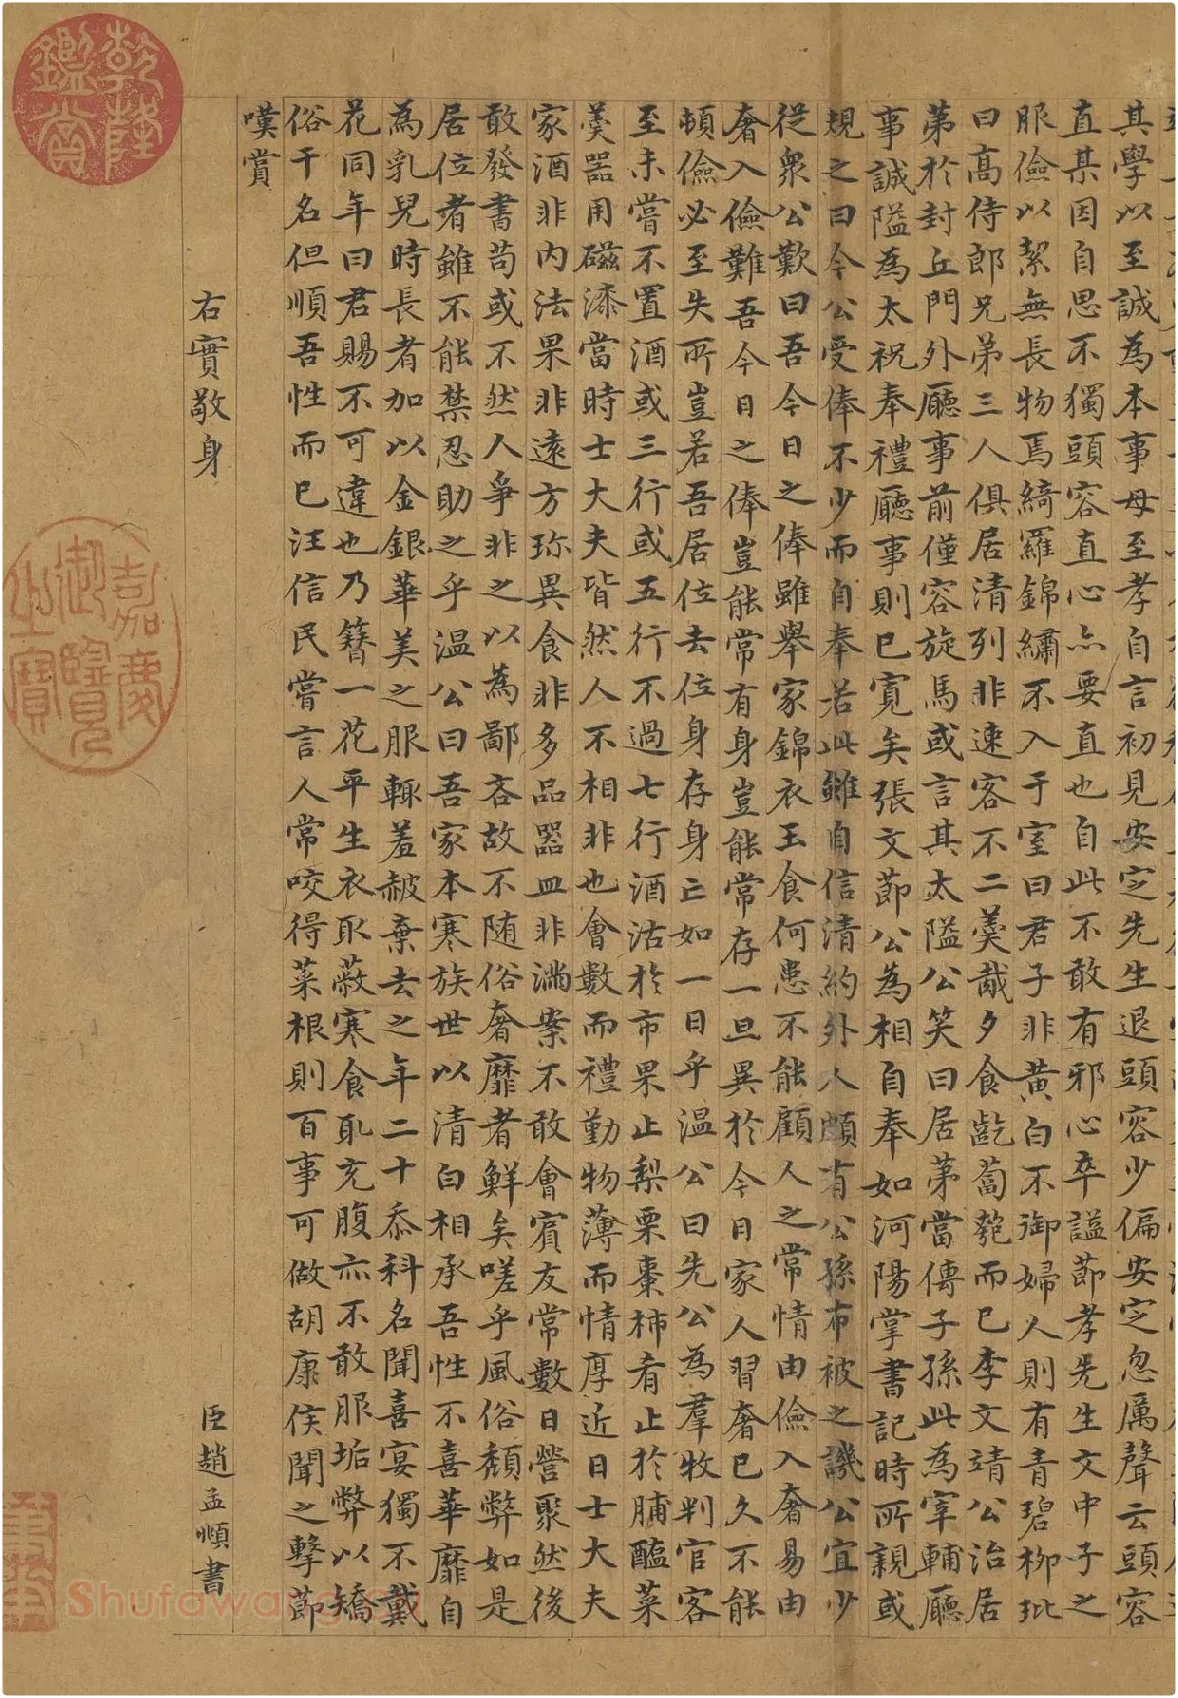 其學以至誠為本事母至孝自言初見安定先生退頭容少偏安定忽厲聲云頭容
直某因自思不獨頭容直心亦要直也自此不敢有邪心卒謚節孝先生文中子之
服儉以絜無長物焉綺羅錦繡不入于室曰君子非黃白不御婦人則有青碧柳玭
曰高侍郎兄弟三人俱居清列非速客不二羹胾夕食齕蔔匏而已李文靖公治居
第於封丘門外廳事前僅容旋馬或言其太隘公笑曰居第當傳子孫此為宰輔廳
事誠隘為太祝奉禮廳事則已寬矣張文節公為相自奉如河陽掌書記時所親或
規之曰今公受俸不少而自奉若此雖自信清約外人頗有公孫布被之譏公宜少
從眾公歎曰吾今日之俸雖舉家錦衣玉食何患不能顧人之常情由儉入奢易由
奢入儉難吾今日之俸豈能常有身豈能常存一旦異於今日家人習奢已久不能
頓儉必至失所豈若吾居位去位身存身亡如一日乎溫公曰先公為羣牧判官客
至未嘗不置酒或三行或五行不過七行酒沽於市果止梨栗棗柿肴止於脯醢菜
羹器用磁漆當時士大夫皆然人不相非也會數而禮勤物薄而情厚近日士大夫
家酒非內法果非遠方珎異食非多品器皿非滿案不敢會賓友常數日營聚然後
敢發書苟或不然人爭非之以為鄙吝故不隨俗奢靡者鮮矣嗟乎風俗頹弊如是
居位者雖不能禁忍助之乎溫公曰吾家本寒族世以清白相承吾性不喜華靡自
為乳兒時長者加以金銀華美之服輒羞赧棄去之年二十忝科名聞喜宴獨不戴
花同年曰君賜不可違也乃簪一花平生衣取蔽寒食取充腹亦不敢服垢弊以矯
俗干名但順吾性而已汪信民嘗言人常咬得菜根則百事可做胡康侯聞之擊節
嘆賞
右實敬身
臣趙孟頫書
乾隆鑑賞
嘉慶御覽之寶
Shufawang